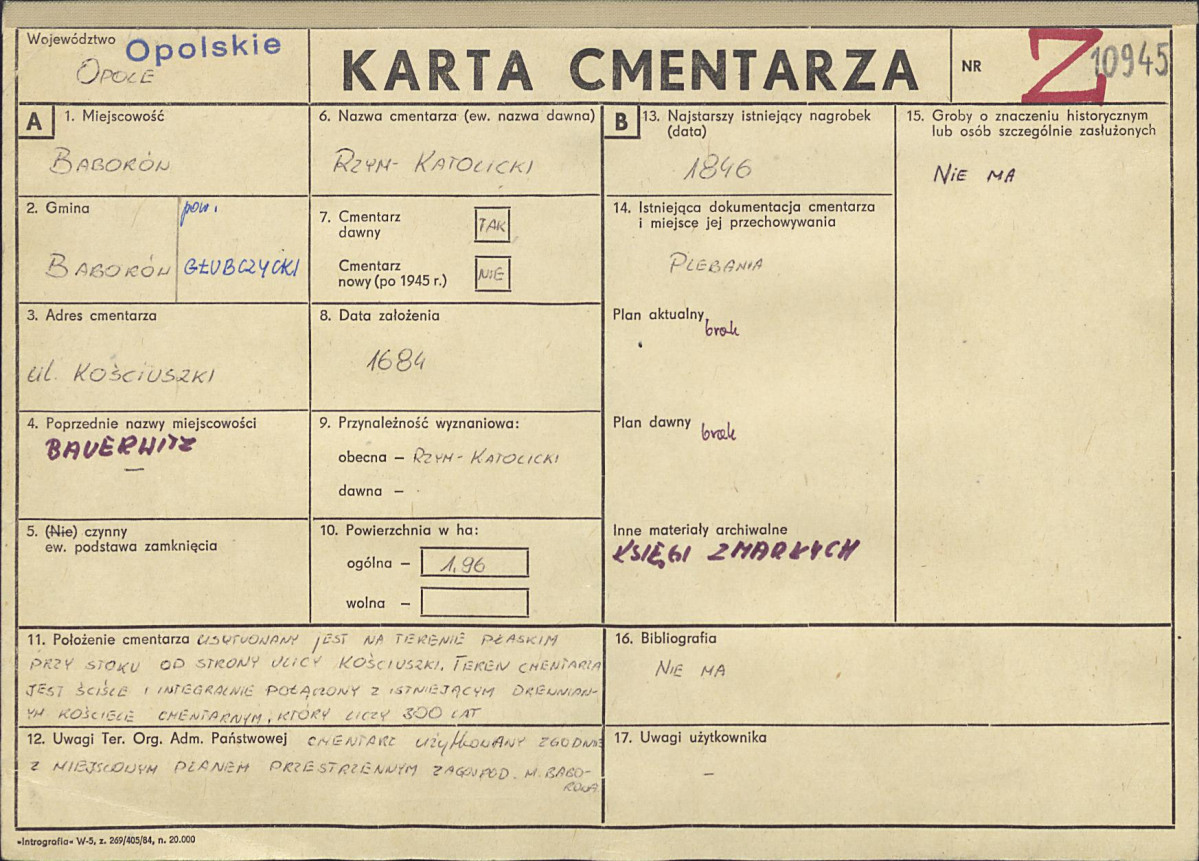 Województwo Opolskie
OPOLE
KARTA CMENTARZA
NR Z 10945
A 1. Miejscowość
BABORÓW
2. Gmina
BABORÓW
pow.
GŁUBCZYCKI
3. Adres cmentarza
ul. KOŚCIUSZKI
4. Poprzednie nazwy miejscowości
BAUERWITZ
—
5. (Nie) czynny
ew. podstawa zamknięcia
6. Nazwa cmentarza (ew. nazwa dawna)
RZYM-KATOLICKI
7. Cmentarz
dawny TAK
Cmentarz
nowy (po 1945 r.) NIE
8. Data założenia
1684
9. Przynależność wyznaniowa:
obecna – RZYM-KATOLICKI
dawna –
10. Powierzchnia w ha:
ogólna – 1,96
wolna –
11. Położenie cmentarza USYTUOWANY JEST NA TERENIE PŁASKIM
PRZY STOKU OD STRONY ULICY KOŚCIUSZKI. TEREN CMENTARZA
JEST ŚCIŚLE I INTEGRALNIE POŁĄCZONY Z ISTNIEJĄCYM DREWNIAN-
YM KOŚCIELE CMENTARNYM, KTÓRY LICZY 300 LAT
12. Uwagi Ter. Org. Adm. Państwowej CMENTARZ UŻYTKOWANY ZGODNIE
Z MIEJSCOWYM PLANEM PRZESTRZENNYM ZAGOSPOD. M. BABO-
ROWA
B 13. Najstarszy istniejący nagrobek
(data)
1846
14. Istniejąca dokumentacja cmentarza
i miejsce jej przechowywania
PLEBANIA
Plan aktualny brak
Plan dawny brak
Inne materiały archiwalne
KSIĘGI ZMARŁYCH
15. Groby o znaczeniu historycznym
lub osób szczególnie zasłużonych
NIE MA
16. Bibliografia
NIE MA
17. Uwagi użytkownika
–
»Intrografia« W-5, z. 269/405/84, n. 20.000